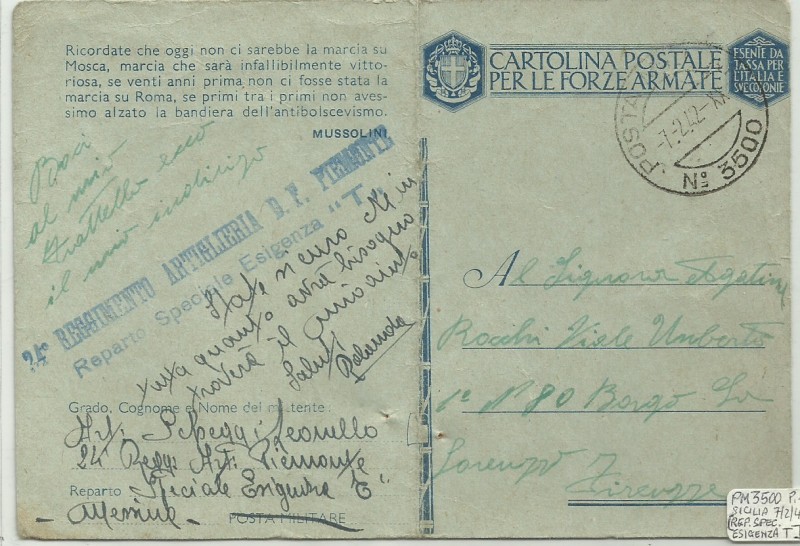 Ricordate che oggi non ci sarebbe la marcia su
Mosca, marcia che sarà infallibilmente vitto-
riosa, se venti anni prima non ci fosse stata la
marcia su Roma, se primi tra i primi non aves-
simo alzato la bandiera dell'antibolscevismo.
MUSSOLINI
Baci
al mio
frattello ecco
il mio indirizo
24° REGGIMENTO ARTIGLIERIA D. F. PIEMONTE
Reparto Speciale Esigenza "T"
State sicuro
quanto avrà bisogno
troverà il mio aiuto
Saluti
Grado, Cognome e Nome del mittente:
Art. Scheggi Leonello
24 Regg. Art. Piemonte
Reparto Speciale Esigenza T
POSTA MILITARE
CARTOLINA POSTALE
PER LE FORZE ARMATE
ESENTE DA
TASSA PER
L'ITALIA E
SUE COLONIE
POSTA
-7.2.42-XX
N° 3500
Al Signora
Rocchi Viale Umberto
1° N 80 Borgo San
Lorenzo
Firenze
PM 3500 P.
SICILIA 7/2/4
REP. SPEC.
ESIGENZA T